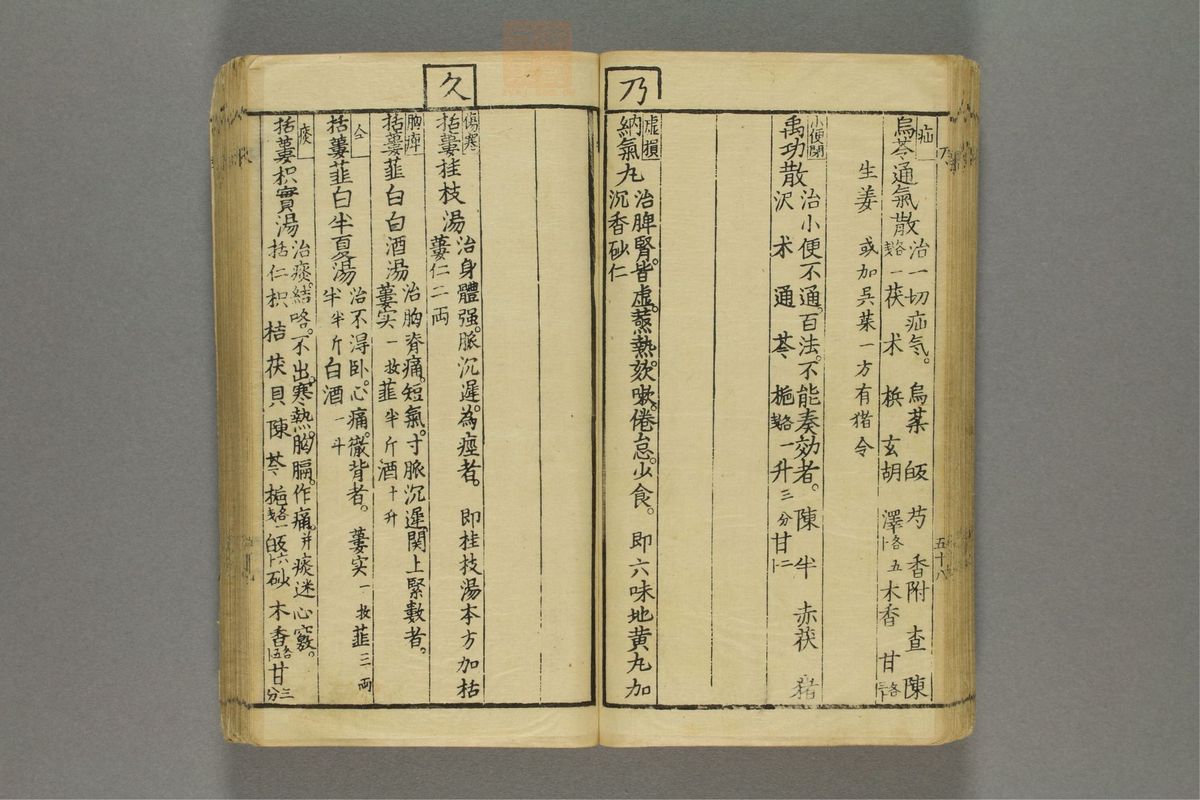 乃
疝
烏苓通氣散
治一切疝气。烏薬 皈 芍 香附 査 陳
一茯 术 梹 玄胡 澤 五木香 甘
生姜 或加呉茱一方有猪令
五十八
小便閉
禹功散
治小便不通。百法。不能奏効者。陳 半 赤茯 猪
沢 术 通 芩 梔 一升三分甘二
虚損
納氣丸
治脾腎。皆虚。蒸熱。欬嗽。倦怠。少食。 即六味地黄丸加
沉香砂仁
久
傷寒
括蔞桂枝湯
治身體强。脈沉遲。為痙者。 即桂枝湯本方加枯
蔞仁二両
胸痺
括蔞薤白白酒湯
治胸脊痛。短氣。寸脈沉遲。関上緊數者。
蔞実一枚薤半斤酒十升
仝
括蔞薤白半夏湯
治不淂卧。心痛。徹背者。 蔞实一枚薤三両
半半斤白酒一斗
痰
括蔞枳實湯
治痰。結咯。不出。寒熱。胸膈。作痛。并痰迷心竅。
括仁枳 桔 茯貝 陳 芩 梔 一皈 六砂 木香 五甘三分